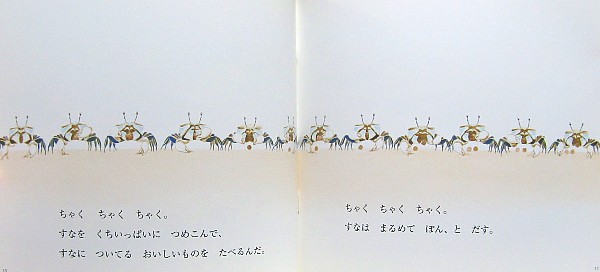 ちゃく ちゃく ちゃく。
すなを くちいっぱいに つめこんで、
すなに ついてる おいしいものを たべるんだ。
ちゃく ちゃく ちゃく。
すなは まるめて ぽん、と だす。